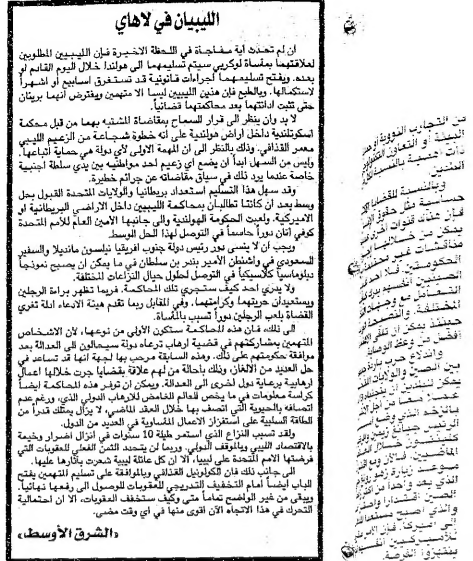 الليبيان في لاهاي
ان لم تحدث أية مفاجأة في اللحظة الاخيرة فإن الليبيين المطلوبين
لعلاقتهما بمأساة لوكربي سيتم تسليمهما الى هولندا خلال اليوم القادم او
بعده. ويفتح تسليمهما لجراءات قانونية قد تستغرق اسابيع أو اشهراً
لاستكمالها. وبالطبع فإن هذين الليبيين ليسا الا متهمين ويفترض أنهما بريئان
حتى تثبت ادانتهما بعد محاكمتهما قضائياً.
لا بد وان ينظر الى قرار السماح بمقاضاة المشتبه بهما من قبل محكمة
اسكوتلندية داخل أراض هولندية على أنه خطوة شجاعة من الزعيم الليبي
معمر القذافي. وذلك بالنظر الى ان المهمة الاولى لأي دولة هي حماية أتباعها.
وليس من السهل ابداً أن يضع اي زعيم احد مواطنيه بين يدي سلطة أجنبية
خاصة عندما يرد ذلك في سياق مقاضاته عن جرائم خطيرة.
وقد سهل هذا التسليم استعداد بريطانيا والولايات المتحدة القبول بحل
وسط بعد ان كانتا تطالبان بمحاكمة الليبيين داخل الاراضي البريطانية او
الاميركية. ولعبت الحكومة الهولندية والى جانبها الامين العام للأمم المتحدة
كوفي أنان دوراً حاسماً في التوصل لهذا الحل الوسط.
ويجب ان لا ينسى دور رئيس دولة جنوب افريقيا نيلسون مانديلا والسفير
السعودي في واشنطن الأمير بندر بن سلطان في ما يمكن ان يصبح نموذجاً
دبلوماسياً كلاسيكياً في التوصل لحلول حيال النزاعات المختلفة.
ولا يدري احد كيف ستجري تلك المحاكمة. فربما تظهر براءة الرجلين
ويستعيدان حريتهما وكرامتهما. وفي المقابل ربما تقدم هيئة الادعاء ادلة تغري
القضاة بلعب الرجلين دوراً تسبب بالمأساة.
الى ذلك، فان هذه المحاكمة ستكون الأولى من نوعها، لأن الاشخاص
المتهمين بمشاركتهم في قضية ارهاب ترعاه دولة سيحالون الى العدالة بعد
موافقة حكومتهم على ذلك. وهذه السابقة مرحب بها لجهة انها قد تساعد في
حل العديد من الالغاز، وذلك باحالة من لهم علاقة بقضايا جرت خلالها اعمال
ارهابية برعاية دول اخرى الى العدالة. ويمكن ان توفر هذه المحاكمة ايضاً
كراسة معلومات في ما يخص العالم الغامض للارهاب الدولي الذي، ورغم عدم
اتصافه بالحيوية التي اتصف بها خلال العقد الماضي، لا يزال يمتلك قدراً من
الطاقة السلبية على استفزاز الاعمال المأساوية في العديد من الدول.
ولقد تسبب النزاع الذي استمر طيلة 10 سنوات في انزال اضرار وخيمة
بالاقتصاد الليبي وبالموقف الدولي. وربما لن يتحدد الثمن الفعلي للعقوبات التي
فرضتها الامم المتحدة على ليبيا، الا ان كل عائلة ليبية شعرت بآثارها عليها.
الى جانب ذلك فان الكولونيل القذافي وبالموافقة على تسليم المتهمين يفتح
الباب ايضاً امام التخفيف التدريجي للعقوبات للوصول الى رفعها نهائياً.
ويبقى من غير الواضح تماماً متى وكيف ستخفف العقوبات، الا ان احتمالية
التحرك في هذا الاتجاه الآن اقوى منها في اي وقت مضى.
«الشرق الأوسط»
من التجارب النووية أو
البيئة أو التعاون
ذات أجنبية بالنسبة
البلدين
وبالنسبة للقضايا
حساسية مثل حقوق
فإن هناك قنوات أخرى
يمكن من خلالها
مناقشات غير
الحكومتين. فلا أحد
الصينيين انفسهم
التعامل مع وجهات
المختلفة. والنصيحة
حينئذ يمكن ان تلقى
أفضل من وعظ الوصاية
واندلاع حرب باردة
بين الصين والولايات